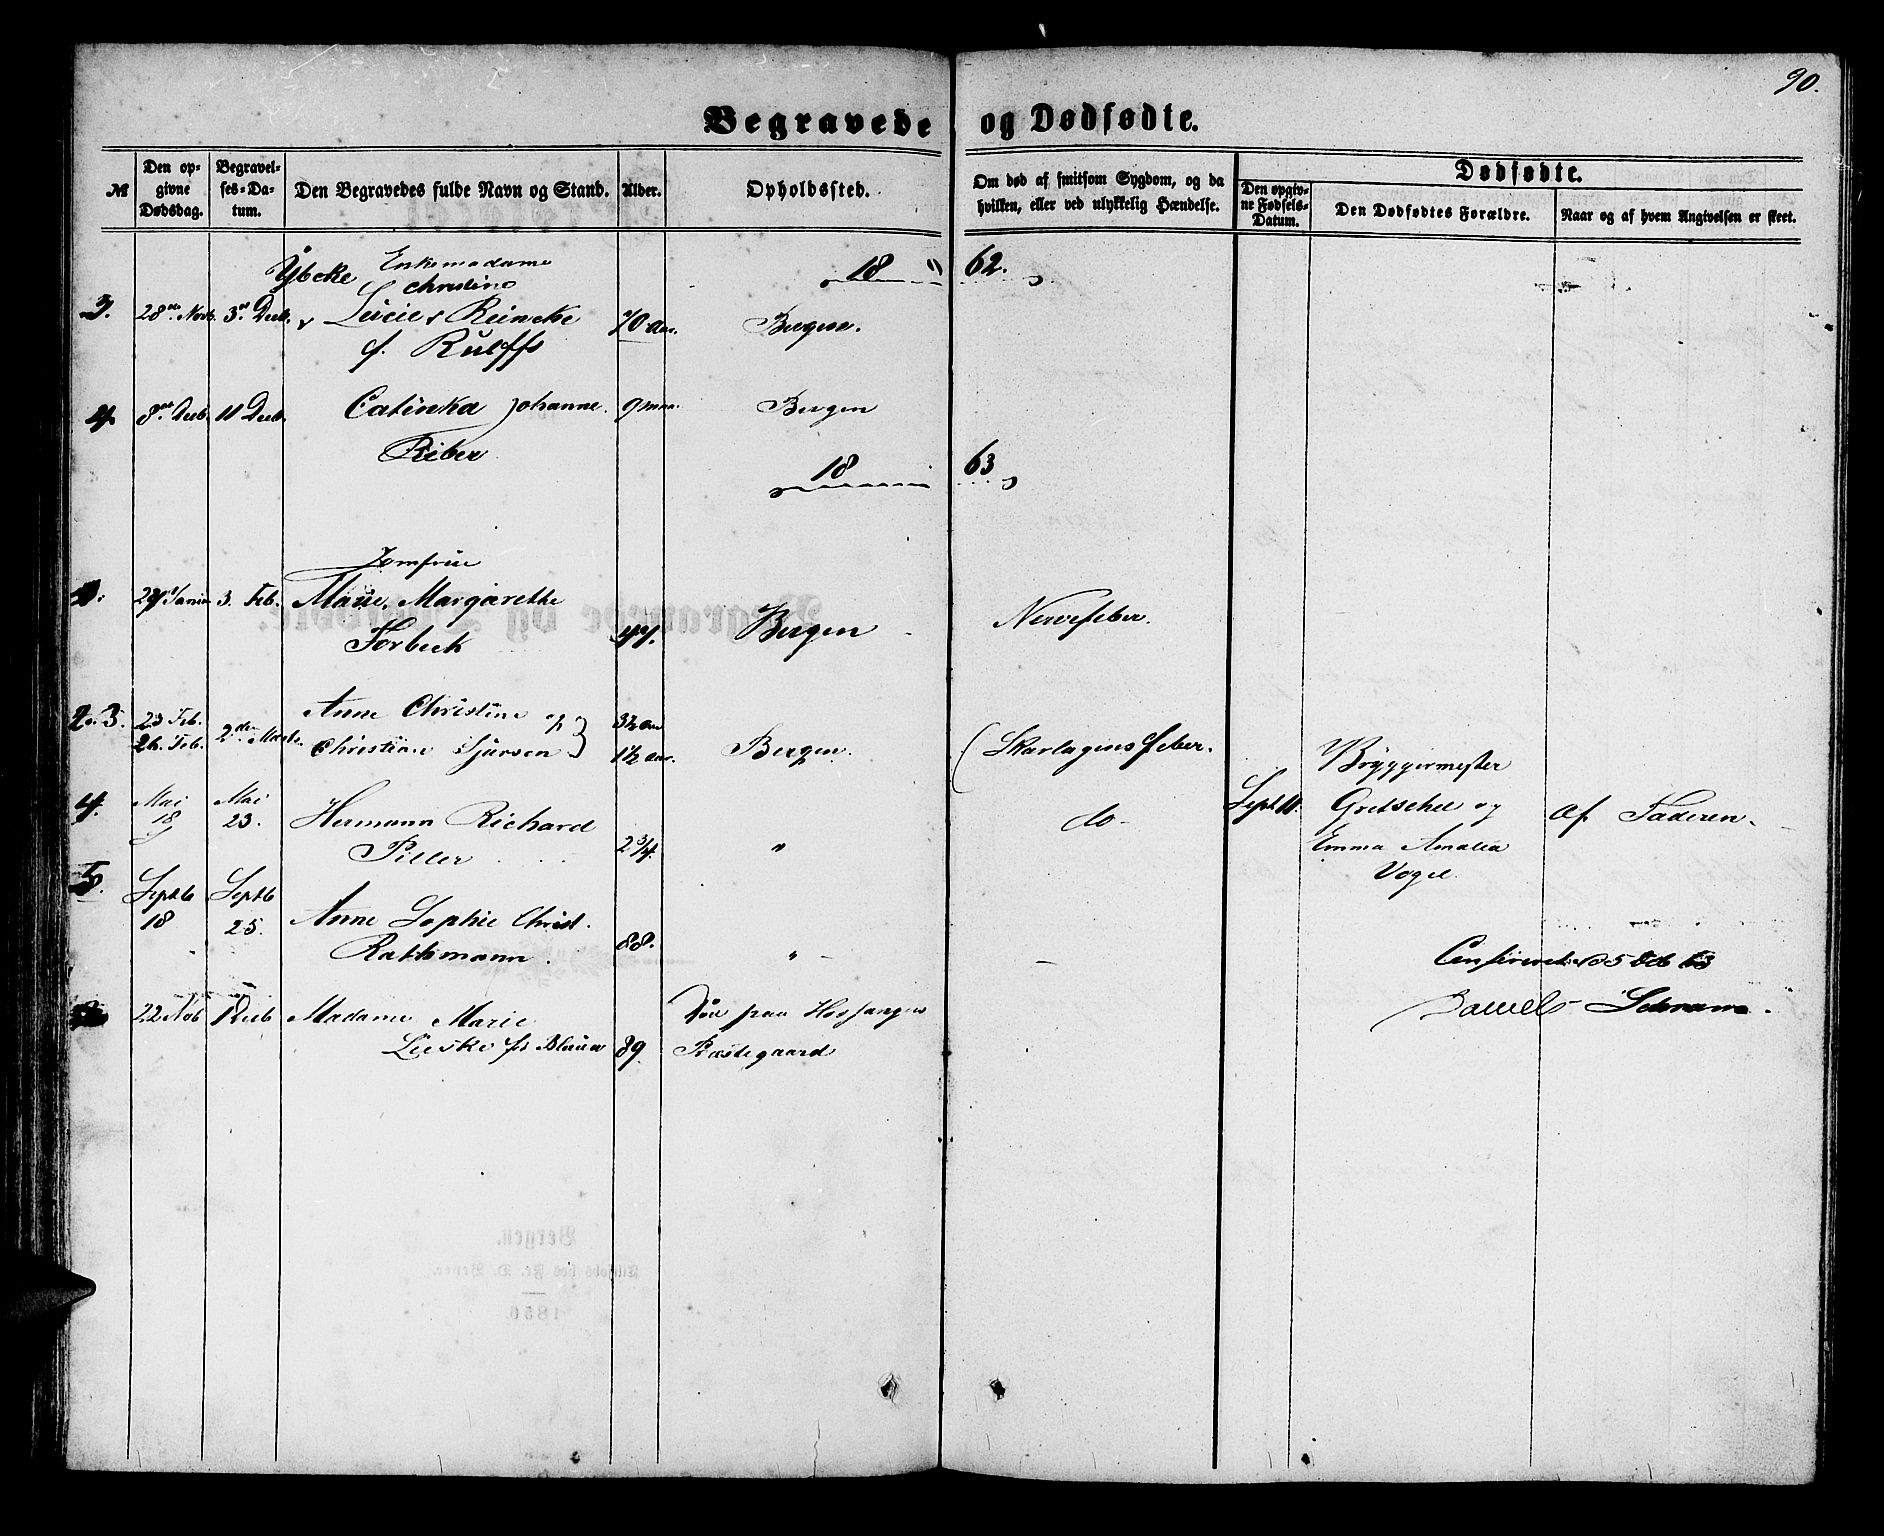 90.
Begravede og Dødfødte.
№ Den opgivne Dødsdag. Begravelses-Datum. Den Begravedes fulde Navn og Stand. Alder. Opholdssted. Om død af smitsom Sygdom, og da hvilken, eller ved ulykkelig Hændelse. Dødfødte. Den opgivne Fødsels-Datum. Den Dødfødtes Forældre. Naar og af hvem Angivelsen er skeet.
18 62.
Enkemadame
Ybcke Christine
3. 28de Novb. 3de Decb. Lucie Reincke 70 aar. Bergen.
f. Rulffs
4. 8de Decb. 11 Decb. Catinka Johanne 9 maa. Bergen
Riber
18 63
Jomfrue
3. Feb. Marie Margarethe
Torbeck 47. Bergen Nervefeber.
2. 3. 23 Feb. Anne Christine 3½ aar
26. Feb. 2den Marts Christiane Sjursen 1½ aar. Bergen. Skarlagensfeber.
Bryggermester
4. Mai 18 Mai 23. Hermann Richard do Sept 11. Gretschel og af Faderen
Piller 2¾. " Emma Amalia
Vogel
5. Septb 18 Septb 25. Anne Sophie Christ.
Rathmann 88. " —
Censeret 5 Feb
22 Nob 1 Decb Madame Marie Døe paa Hosanger
Lieske Blauer 89. Præstegaard
Schram.
Bergen.
1856